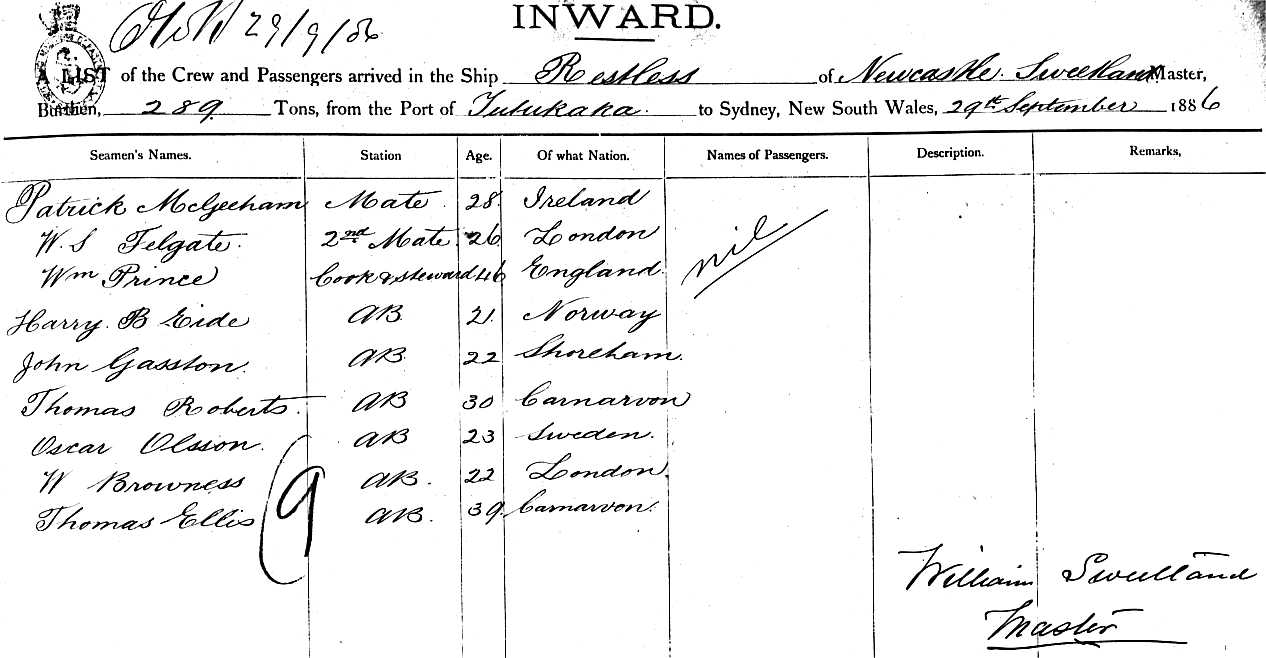 29/9/86
INWARD.
A LIST of the Crew and Passengers arrived in the Ship Restless of Newcastle. Sweetland Master,
Burthen, 289 Tons, from the Port of Tutukaka. to Sydney, New South Wales, 29th September 1886
Seamen's Names. Station Age. Of what Nation. Names of Passengers. Description. Remarks,
Patrick McGeeham Mate. 28. Ireland
W. S Felgate. 2nd Mate. 26 London
Wm Prince Cook & Steward 46 England.
nil
Harry. B Eide AB 21. Norway
John Gasston. AB. 22 Shoreham.
Thomas Roberts. AB 30 Carnarvon
Oscar Olsson. AB 23 Sweden.
W Browness AB. 22 London
Thomas Ellis AB. 39. Carnarvon.
9
William Sweetland
Master